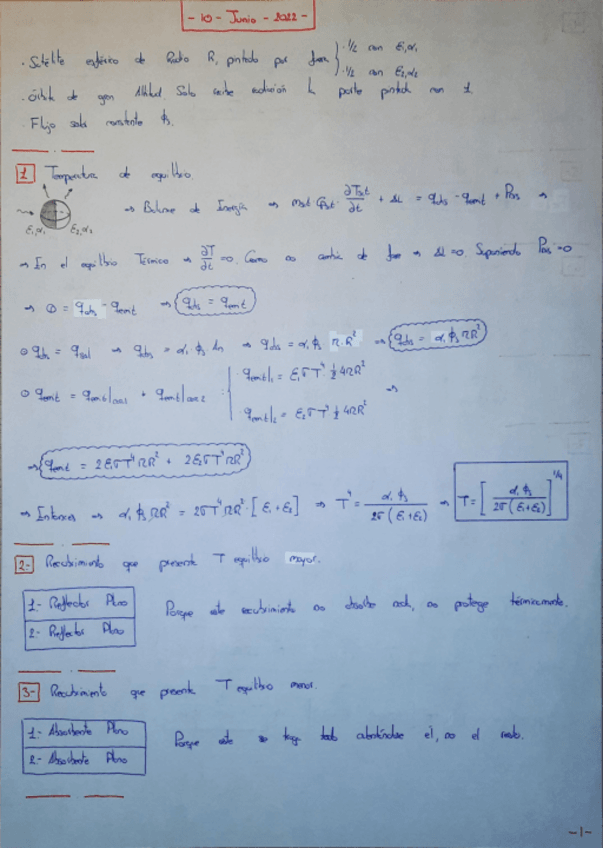 - 10 - Junio - 2022 -
· Satélite esférico de Radio R, pintado por fuera { · 1/2 con ε₁,α₁
· 1/2 con ε₂,α₂
· Órbita de gran Altitud. Solo recibe radiación la parte pintada con 1.
· Flujo solar constante ϕs.
1 Temperatura de equilibrio.
ε₁,α₁ ε₂,α₂ ⇒ Balance de Energía ⇒ msat Cpsat · ∂Tsat/∂t + ΔL = qabs - qemit + Pelec ⇒
⇒ En el equilibrio Térmico ⇒ ∂T/∂t = 0. Como no cambia de fase ⇒ ΔL = 0. Suponiendo = 0
⇒ 0 = qabs - qemit ⇒ qabs = qemit
⊙ qabs = qsol ⇒ qabs = α₁ ϕs An ⇒ qabs = α₁ ϕs π·R² ⇒ qabs = α₁ ϕs πR²
⊙ qemit = qemit|cara1 + qemit|cara2 : { · qemit|₁ = ε₁σT⁴ · ½ 4πR²
· qemit|₂ = ε₂σT⁴ ½ 4πR² ⇒
⇒ qemit = 2ε₁σT⁴πR² + 2ε₂σT⁴πR²
⇒ Entonces ⇒ α₁ ϕs πR² = 2σT⁴πR² · [ε₁+ε₂] ⇒ T⁴ = α₁ ϕs / 2σ(ε₁+ε₂) ⇒ T = [α₁ ϕs / 2σ(ε₁+ε₂)]^1/4
2- Recubrimiento que presente T equilibrio mayor.
1- Reflector Plano
2- Reflector Plano
Porque este recubrimiento no absorbe nada, no protege térmicamente.
3- Recubrimiento que presente T equilibrio menor.
1- Absorbente Plano
2- Absorbente Plano
Porque este se traga todo él, no el resto.
-1-